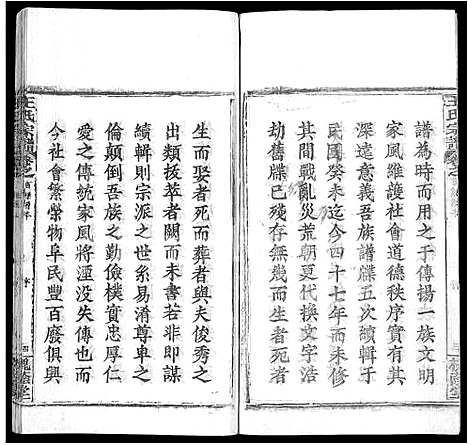 譜為時而用之于傳揚一族文明
家風維護社會道德秩序實有其
深遠意義吾族譜牒五次續輯于
民國癸未迄今四十七年而未修
其間戰亂災荒朝更代換文字浩
劫舊牒已殘存無幾而生者死者
生而娶者死而葬者與夫俊秀之
類拔萃者闕而未書若非即謀
續輯則宗派之世系易淆尊卑之
倫顛倒吾族之勤儉樸實忠厚仁
愛之傳統家風將湮没失傳也而
今社會繁榮物阜民豐百廢俱興
王氏宗譜
四
槐蔭堂